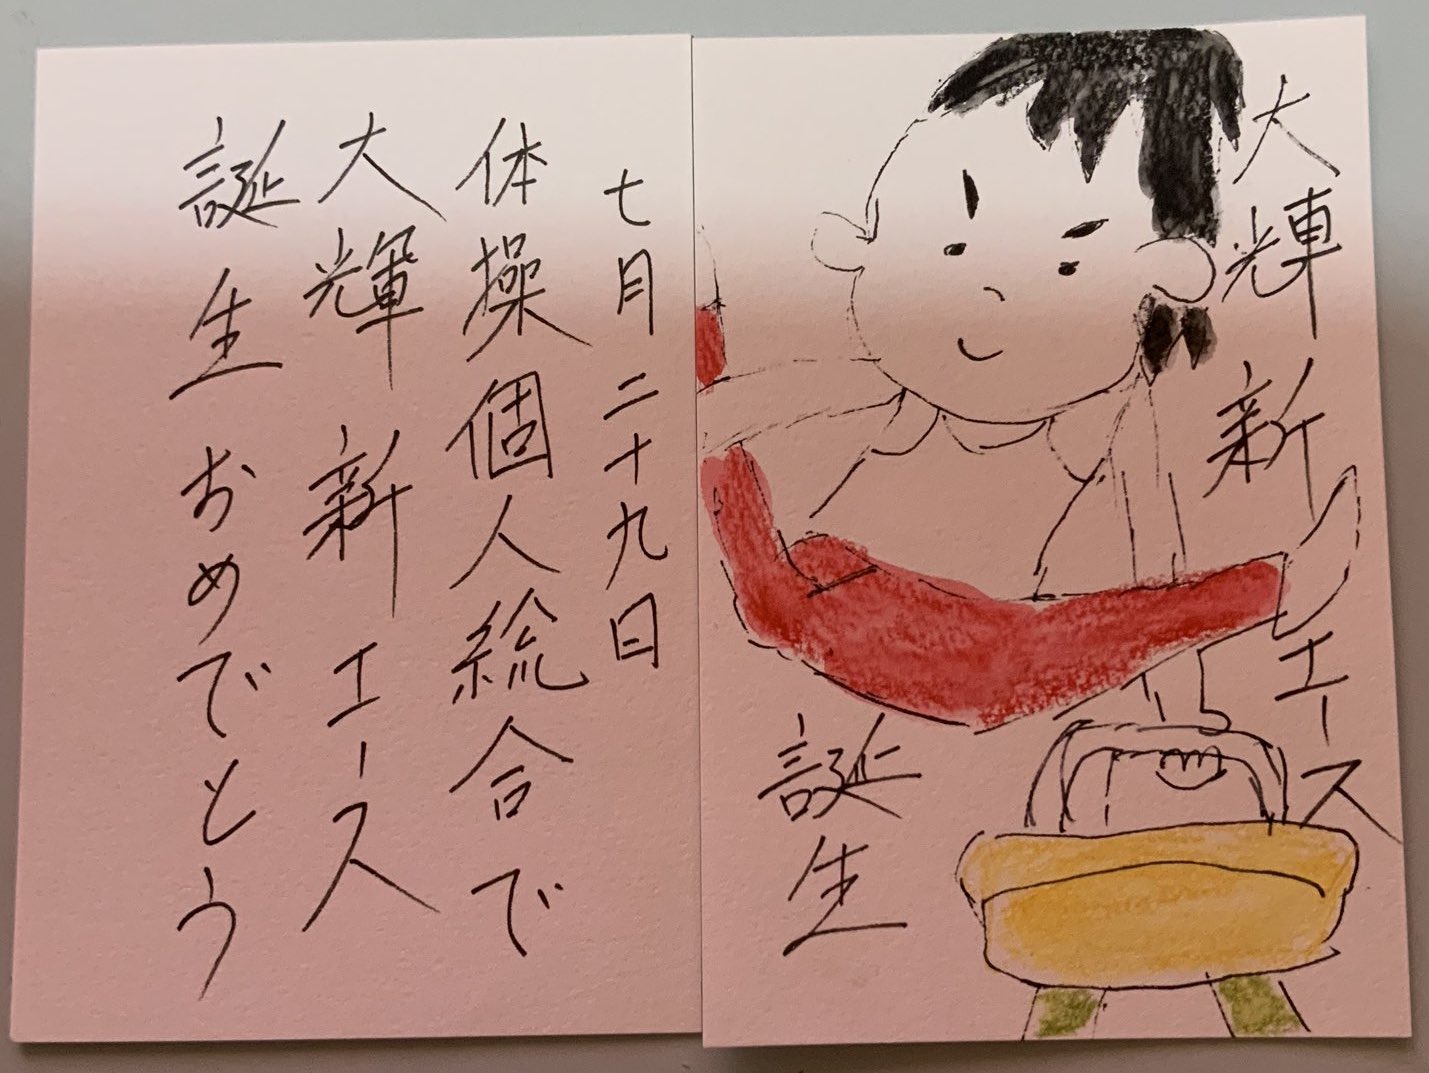 七月二十九日
体操個人総合で
大輝 新エース
誕生おめでとう
大輝 新エース
誕生